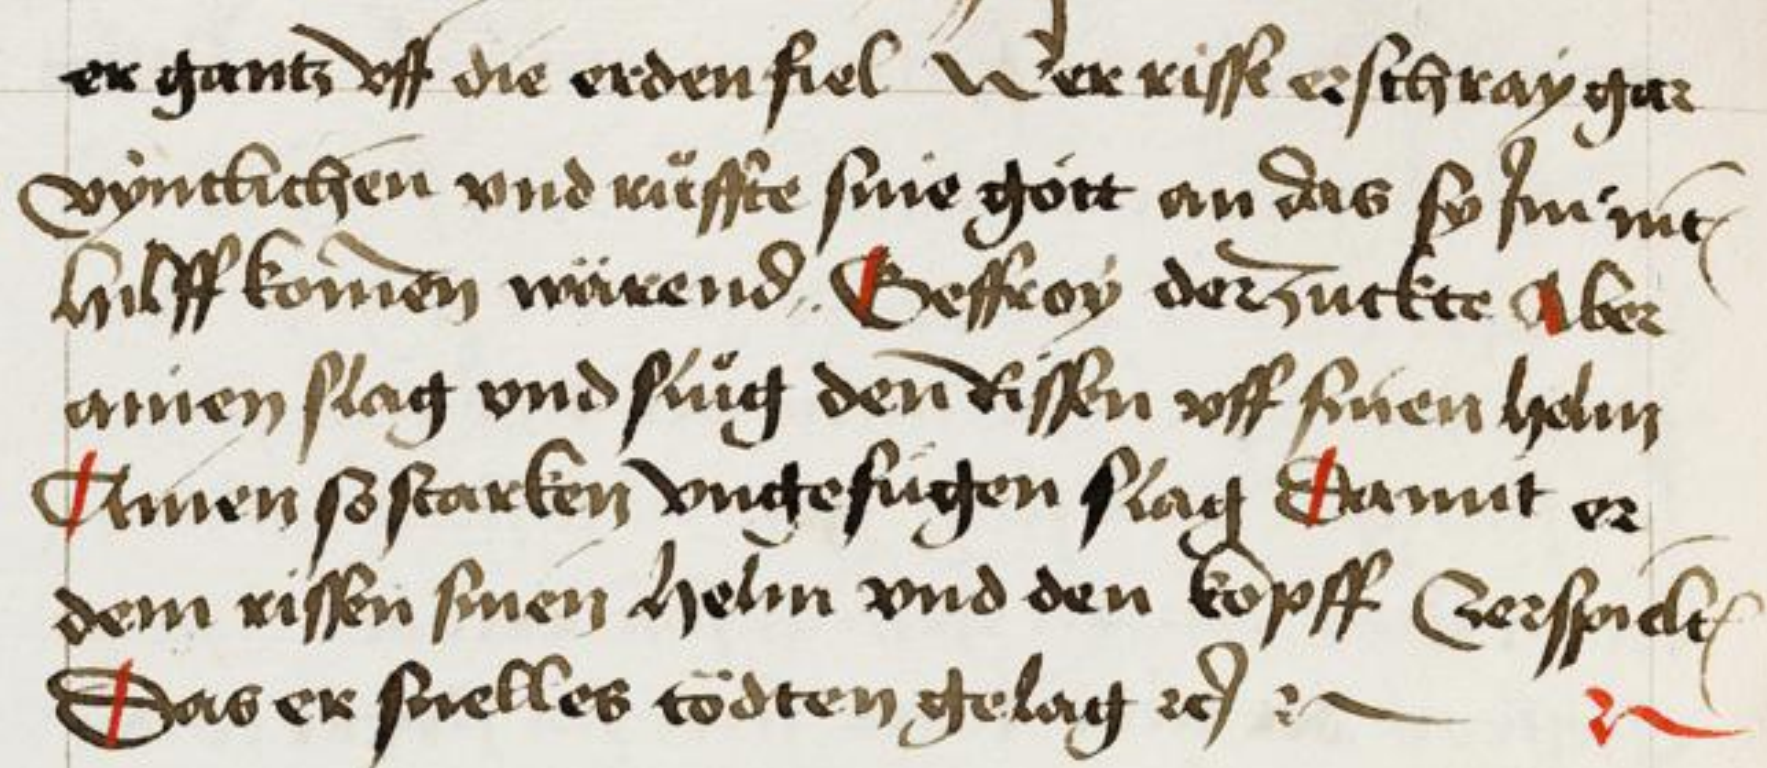 er gantz vff die erden fiel Der risse erschray gar
vyntlichen vnd rüffte sine gött an das sy Jm mit
hilff komen wärend Geffroy der zuckte Aber
ainen slag vnd slüg den Rissen vff sinen helm
Ainen so starken vngefügen slag Damit er
dem rissen sinen helm vnd den kopff Verspielt
Das er snelles tödten gelag ꝛc